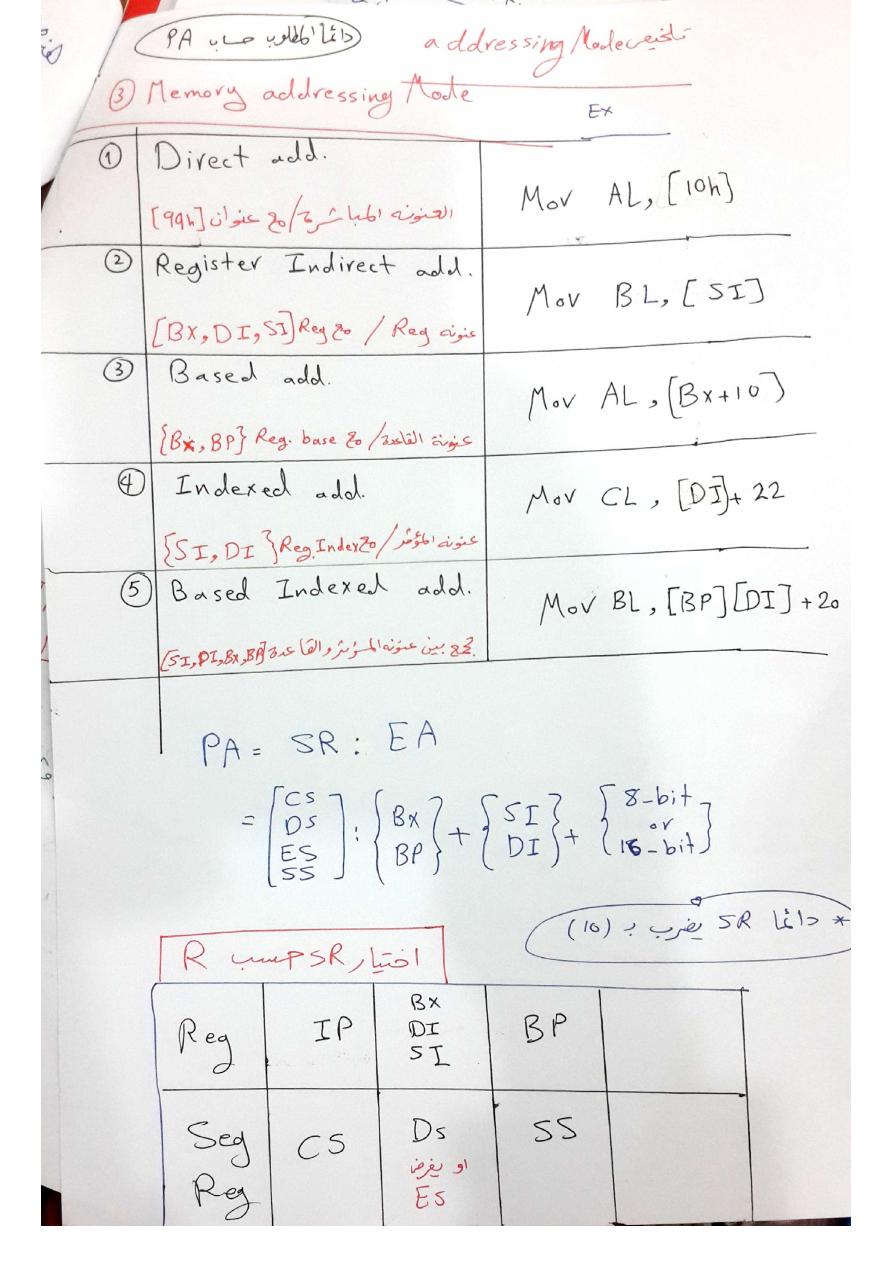 دائماً المطلوب حساب PA
تلخيص addressing Mode
③ Memory addressing Mode
Ex
① Direct add.
العنونه المباشرة / مع عنوان [99h]
Mov AL, [10h]
② Register Indirect add.
عنونه Reg / مع Reg [Bx, DI, SI]
Mov BL, [SI]
③ Based add.
عنونة القاعدة / مع Reg. base {Bx, BP}
Mov AL, [Bx+10]
④ Indexed add.
عنونه المؤشر / مع Reg. Index {SI, DI}
Mov CL, [DI]+ 22
⑤ Based Indexed add.
تجمع بين عنونه المؤشر والقاعدة [SI, DI, Bx, BP]
Mov BL, [BP][DI] +20
PA = SR : EA
= [CS DS ES SS] : {Bx BP} + {SI DI} + {8-bit or 16-bit}
* دائماً SR يضرب بـ (10)
اختيار SR حسب R
Reg IP Bx DI SI BP
Seg Reg CS Ds او يفرض ES SS